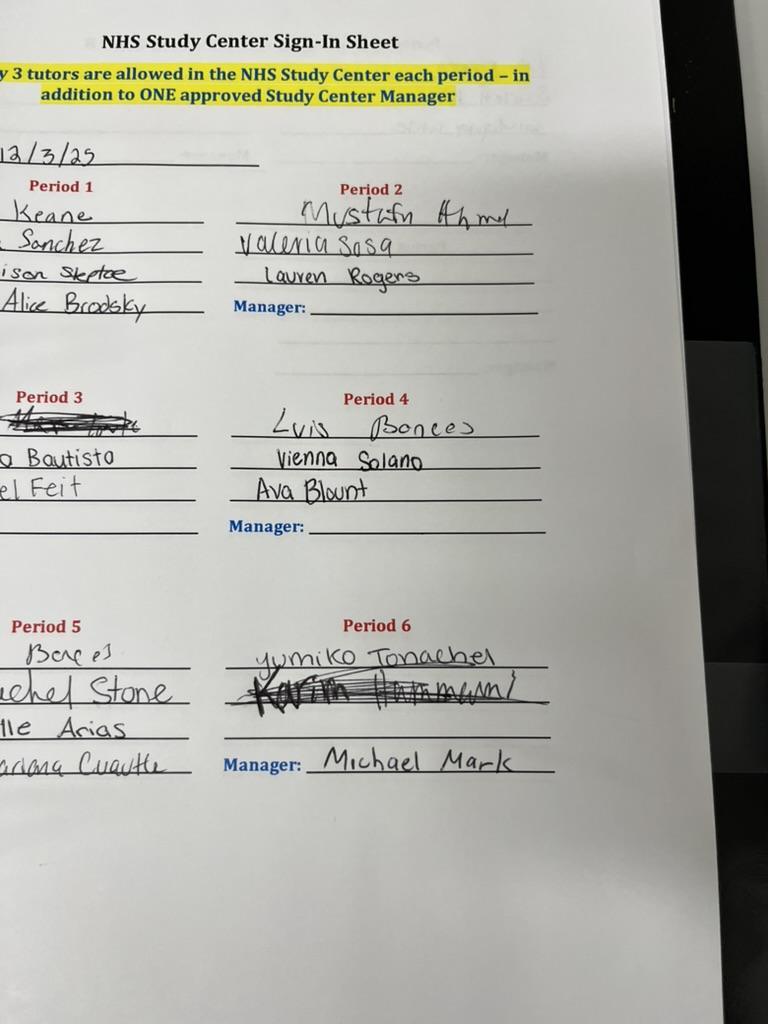 NHS Study Center Sign-In Sheet
y 3 tutors are allowed in the NHS Study Center each period – in
addition to ONE approved Study Center Manager
12/3/25
Period 1
Keane
Sanchez
ison Skeptoe
Alice Brodsky
Period 2
Mustafa Ahmed
Valeria Sosa
Lauren Rogers
Manager:
Period 3
o Bautista
el Feit
Period 4
Luis Bonces
Vienna Solano
Ava Blount
Manager:
Period 5
Bonces
achel Stone
lle Arias
ariana Cuautle
Period 6
Yumiko Tonachel
Karim Hammami
Manager: Michael Mark